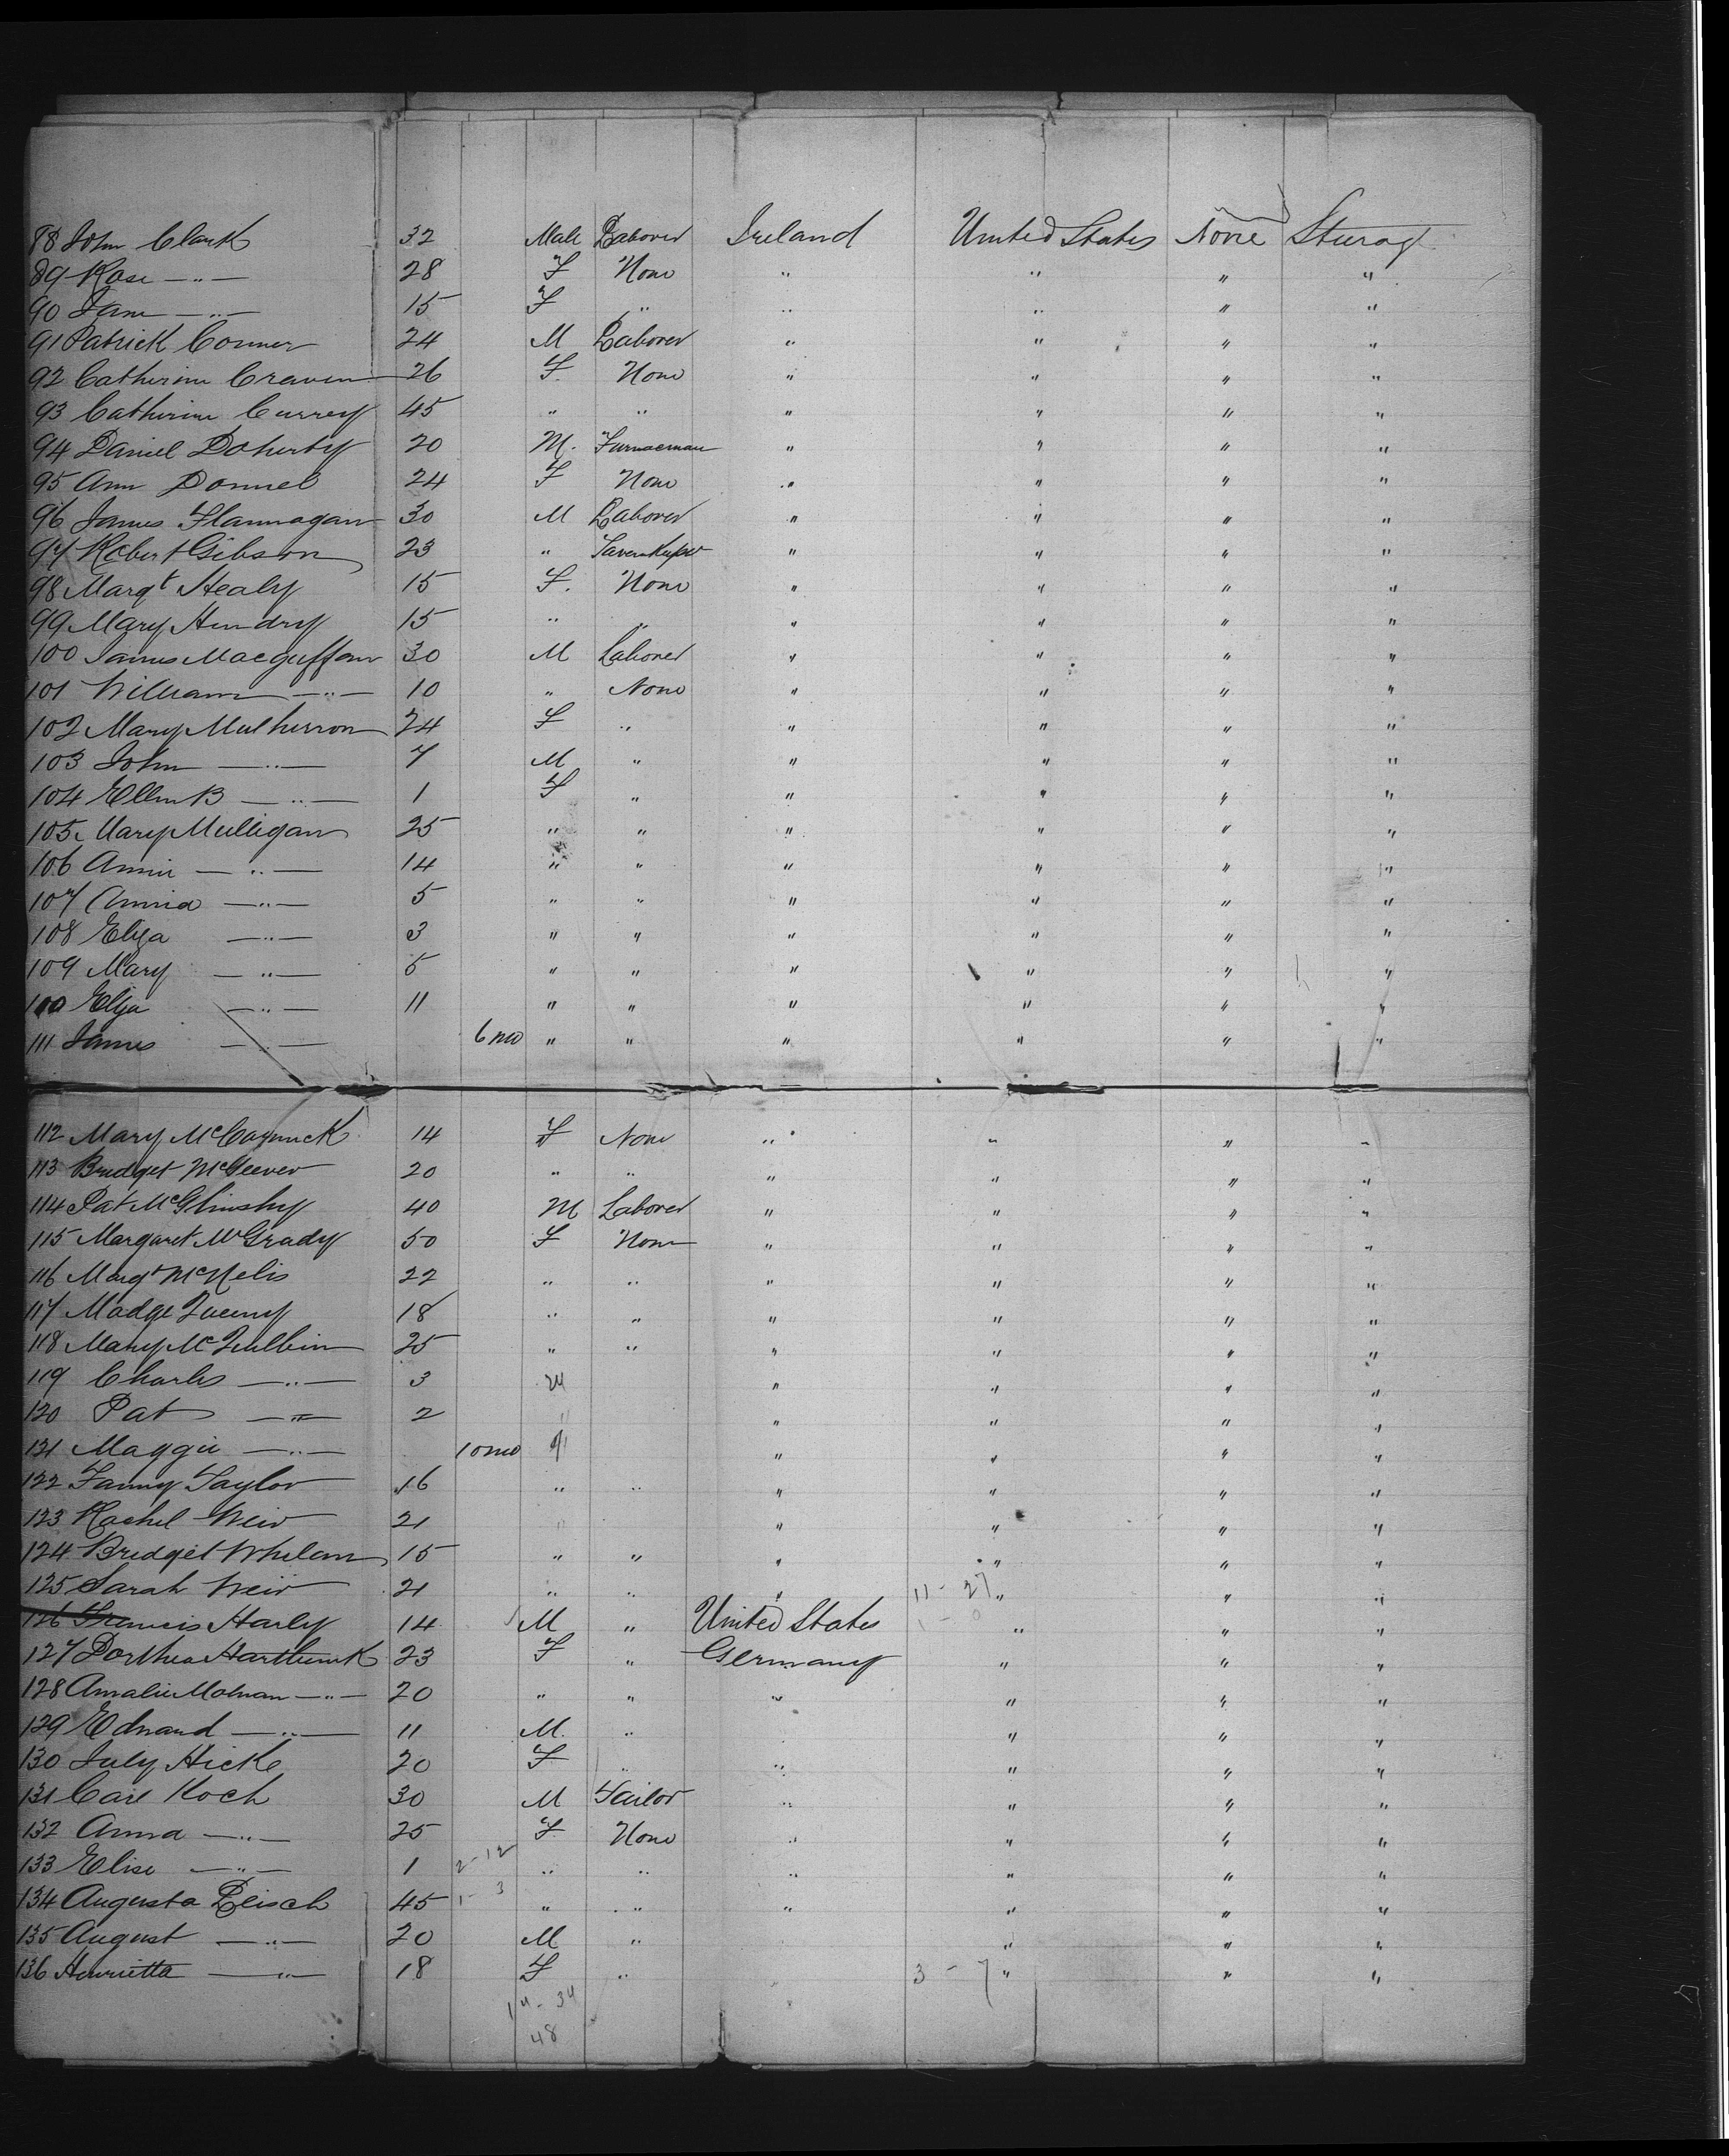 88 John Clark 32 Male Laborer Ireland United States None Sturag
89 Rose —"— 28 F None " " " "
90 Jane —"— 15 F " " " " "
91 Patrick Conner 24 M Laborer " " " "
92 Catherine Craven 26 F. None " " " "
93 Catherine Currey 45 " " " " " "
94 Daniel Doherty 20 M. Furnaceman " " " "
95 Ann Donnel 24 F None " " " "
96 James Flannagan 30 M Laborer " " " "
97 Robert Gibson 23 " Tavernkeper " " " "
98 Margt Healy 15 F. None " " " "
99 Mary Hendry 15 " " " " " "
100 James Macguffan 30 M Laborer " " " "
101 William —"— 10 " None " " " "
102 Mary Mulherron 24 F " " " " "
103 John —"— 7 M " " " " "
104 Ellen B —"— 1 F " " " " "
105 Mary Mulligan 25 " " " " " "
106 Annie —"— 14 " " " " " "
107 Annia —"— 5 " " " " " "
108 Eliza —"— 3 " " " " " "
109 Mary —"— 5 " " " " " "
110 Eliza —"— 11 " " " " " "
111 James —"— 6 mo " " " " " "
112 Mary McCormick 14 F None " " " "
113 Bridget McGeever 20 " " " " " "
114 Pat McGlinshy 40 M Laborer " " " "
115 Margaret McGrady 50 F None " " " "
116 Margt McNelis 22 " " " " " "
117 Madge Queeny 18 " " " " " "
118 Mary McQuilbin 25 " " " " " "
119 Charles —"— 3 M " " " "
120 Pat —"— 2 " " " " "
121 Maggie —"— 10 mo " " " "
122 Fanny Taylor 16 " " " " " "
123 Rachel Weir 21 " " " " "
124 Bridget Whelan 15 " " " " " "
125 Sarah Weir 21 " " " 11 - 27 " " "
126 Francis Harly 14 M " United States " " "
127 Dorthea Hartlunk 23 F " Germany " " "
128 Amalie Molnan —"— 20 " " " " " "
129 Edward —"— 11 M. " " " "
130 July Hicke 20 F " " " " "
131 Carl Koch 30 M Tailor " " " "
132 Anna —"— 25 F None " " " "
133 Elise —"— 1 2-12 " " " " " "
134 Augusta Leisch 45 1-3 " " " " " "
135 August —"— 20 M " " " "
136 Henrietta —"— 18 F " 3 - 7 " " "
14 - 34
48